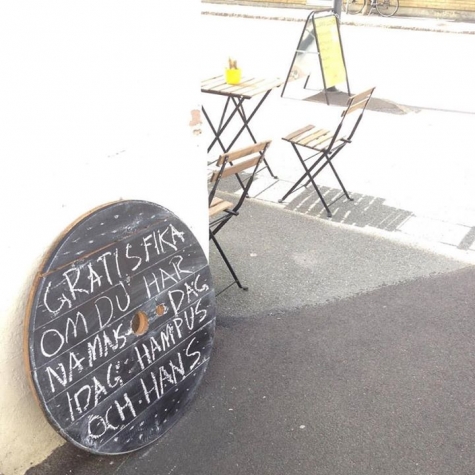 GRATIS FIKA
OM DU HAR
NAMNS- DAG
IDAG: HAMPUS
OCH HANS